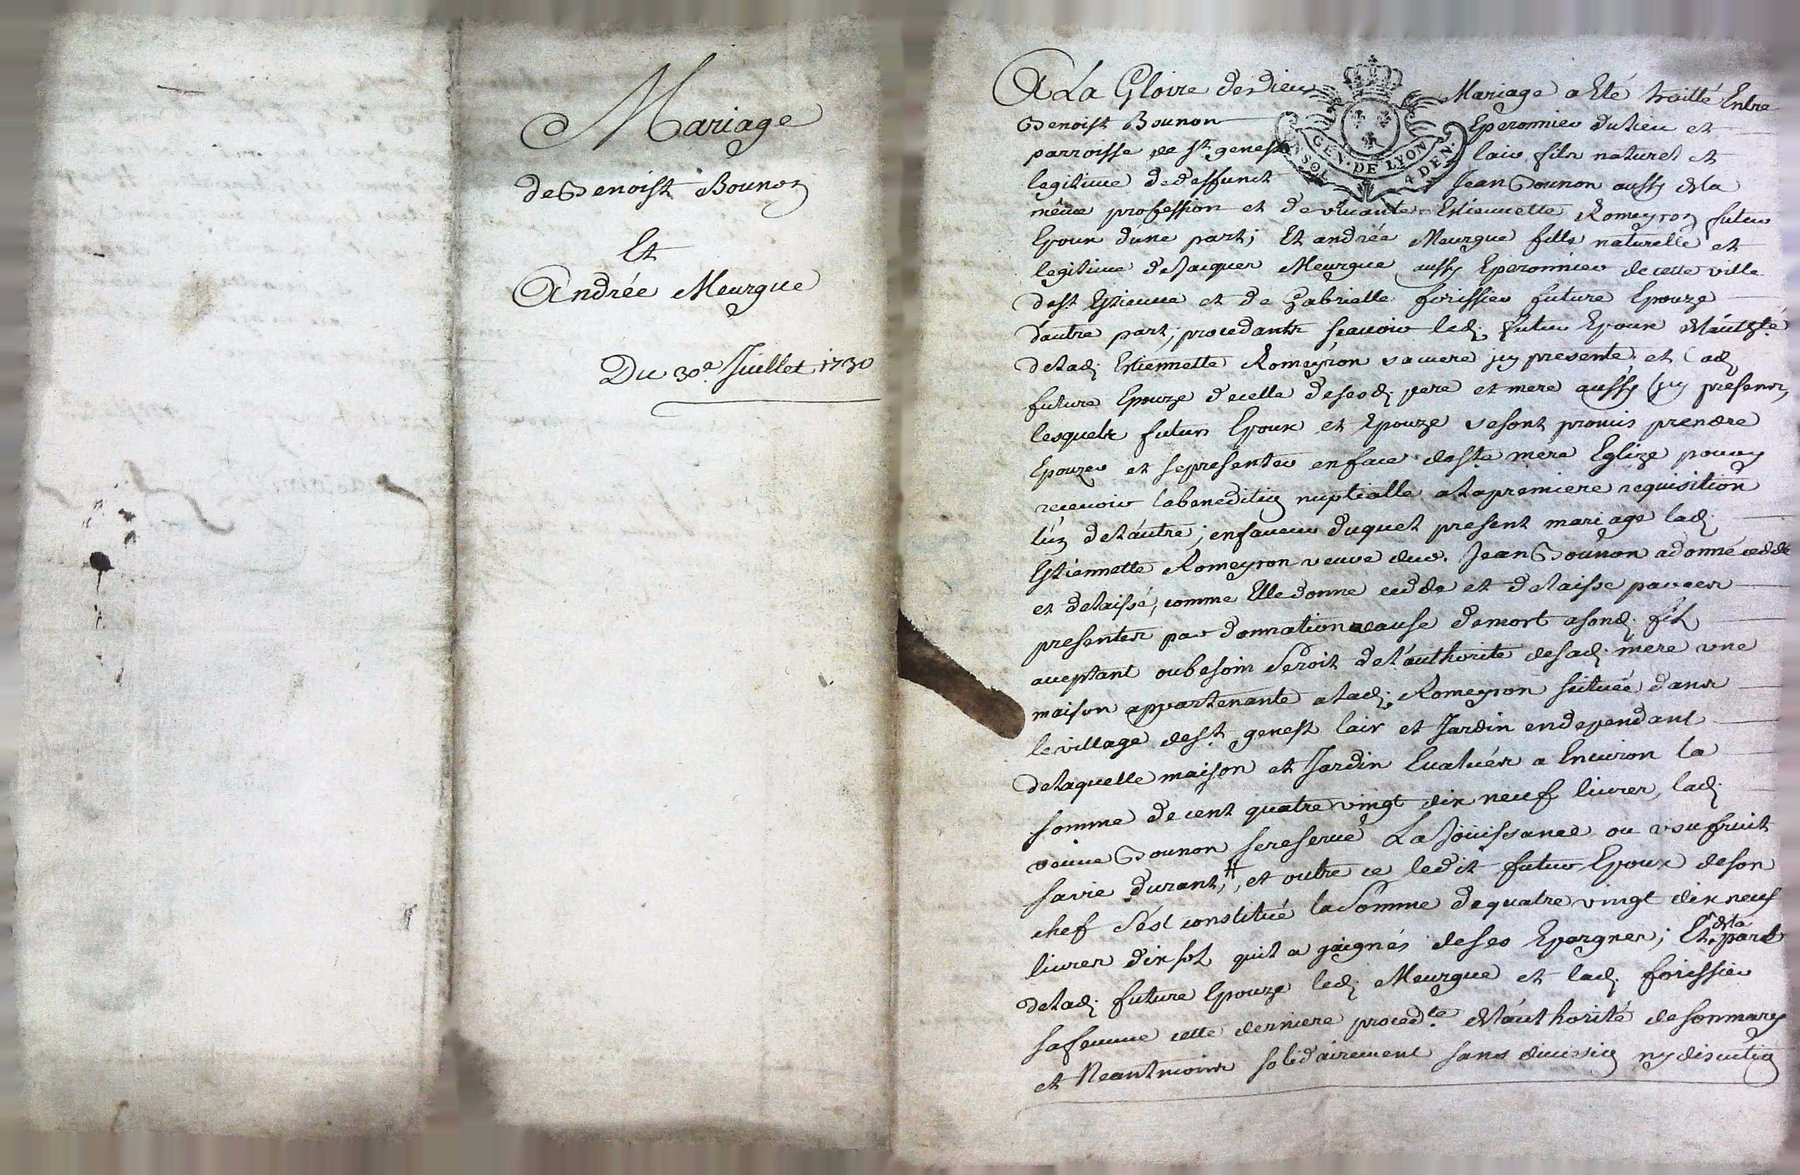 Mariage
de Benoist Bounon
Et
Andrée Meurgue
Du 30e. Juillet 1730
A La Gloire de Dieu Mariage a Eté traitté Entre
Benoist Bounon Eperonnier du lieu et
parroisse de St. genest lair fils naturel et
legitime de deffunct Jean Bounon aussy de la
même profession et de vivante Estiennette Romeyron futur
Epoux d'une part; Et andrée Meurgue fille naturelle et
legitime de Jacques Meurgue aussy Eperonnier de cette ville
de St Estienne et de Gabrielle forissier future Epouze
d'autre part; procedants scavoir led; futur Epoux de l'autté
de lad; Estiennette Romeyron sa mere jcy presente et lad
future Epouze de celle de sesd; pere et mere aussy jcy presens,
lesquels futurs Epoux et Epouze se sont promis prendre
Epouzer et se presenter en face de ste mere Eglize pour y
recevoir la benediction nuptialle a la premiere requisition
l'un de l'autre; en faveur duquel present mariage lad;
Estiennette Romeyron veuve dud. Jean Bounon a donné cedde
et delaissé, comme Elle donne cedde et delaisse par ces
presentes par donnation a cause de mort a sond; fils
aceptant ou besoin seroit de l'authorité de sad; mere une
maison appartenante a lad; Romeyron scituée dans
le village de St. genest lair et Jardin en dependant
de laquelle maison et Jardin Evalués a Environ la
somme de cent quatre vingt dix neuf livres, lad;
veuve Bounon se reserve La Joüissance ou usufruit
sa vie durant, et outre ce ledit futur Epoux de son
chef s'est constitué la Somme de quatre vingt dix neuf
livres dix sols qu'il a gaignés de ses Epargnes; Et de la part
de lad; future Epouze led; Meurgue et lad; forissier
sa femme cette derniere proced.te de l'authorité de son mary
et Neantmoins solidairement sans division ny discution
GEN. DE LYON
4 DEN.